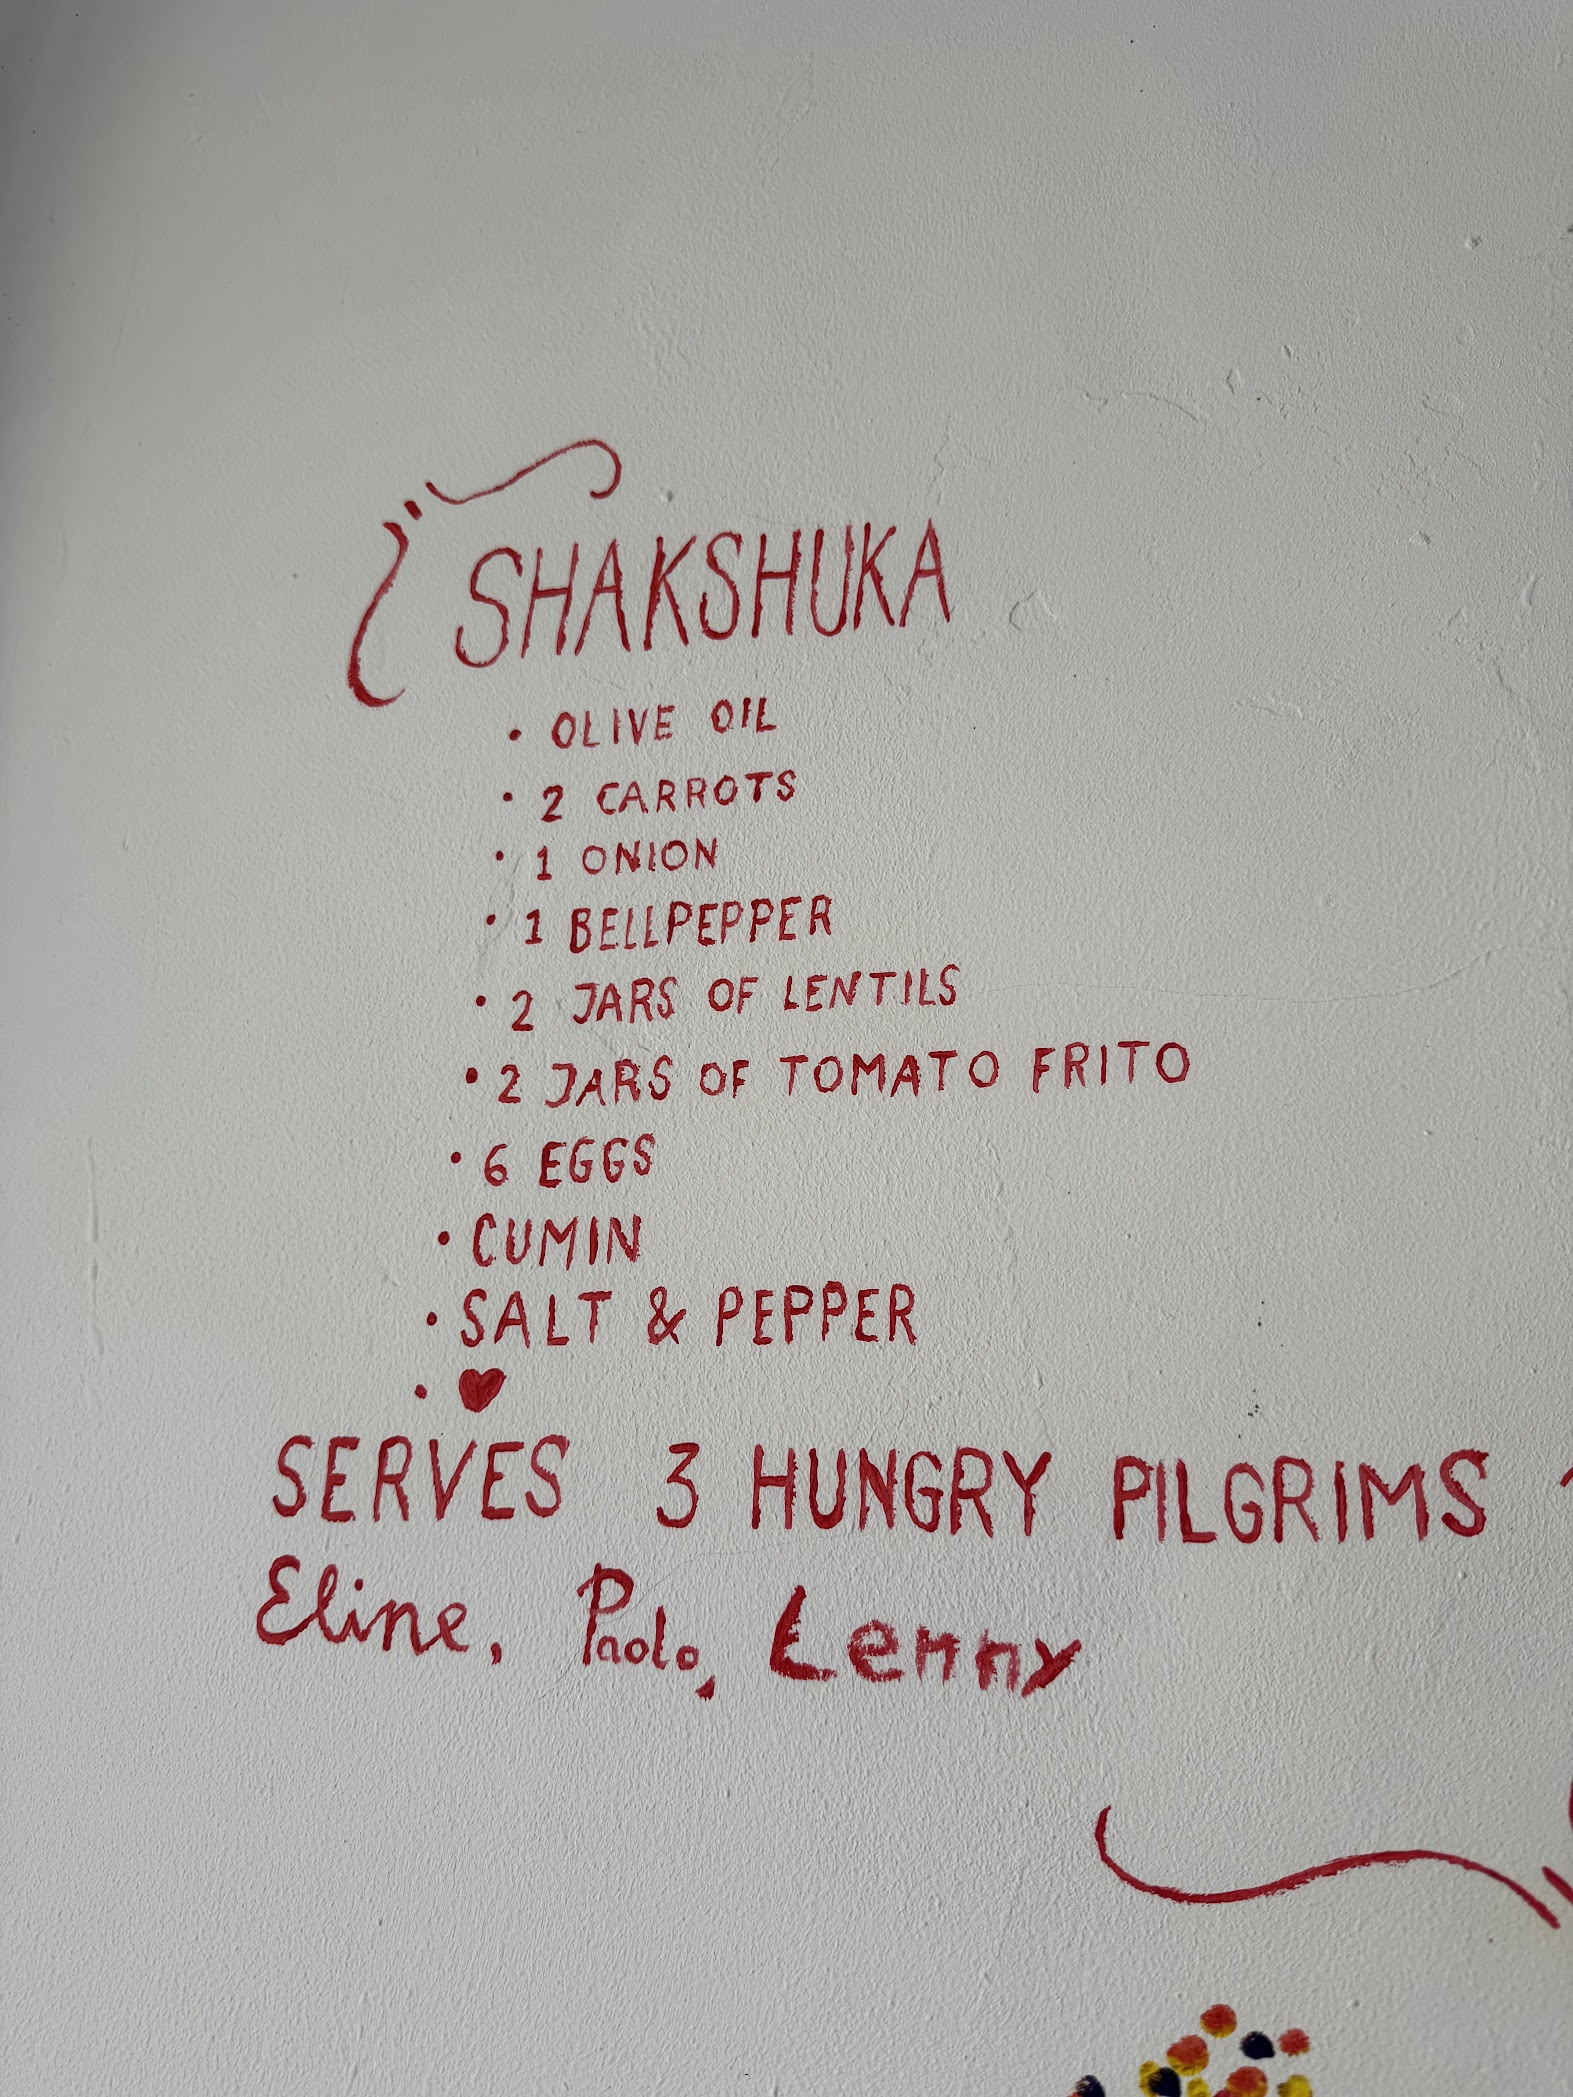 SHAKSHUKA
• OLIVE OIL
• 2 CARROTS
• 1 ONION
• 1 BELLPEPPER
• 2 JARS OF LENTILS
• 2 JARS OF TOMATO FRITO
• 6 EGGS
• CUMIN
• SALT & PEPPER
• ♥
SERVES 3 HUNGRY PILGRIMS
Eline, Paolo, Lenny